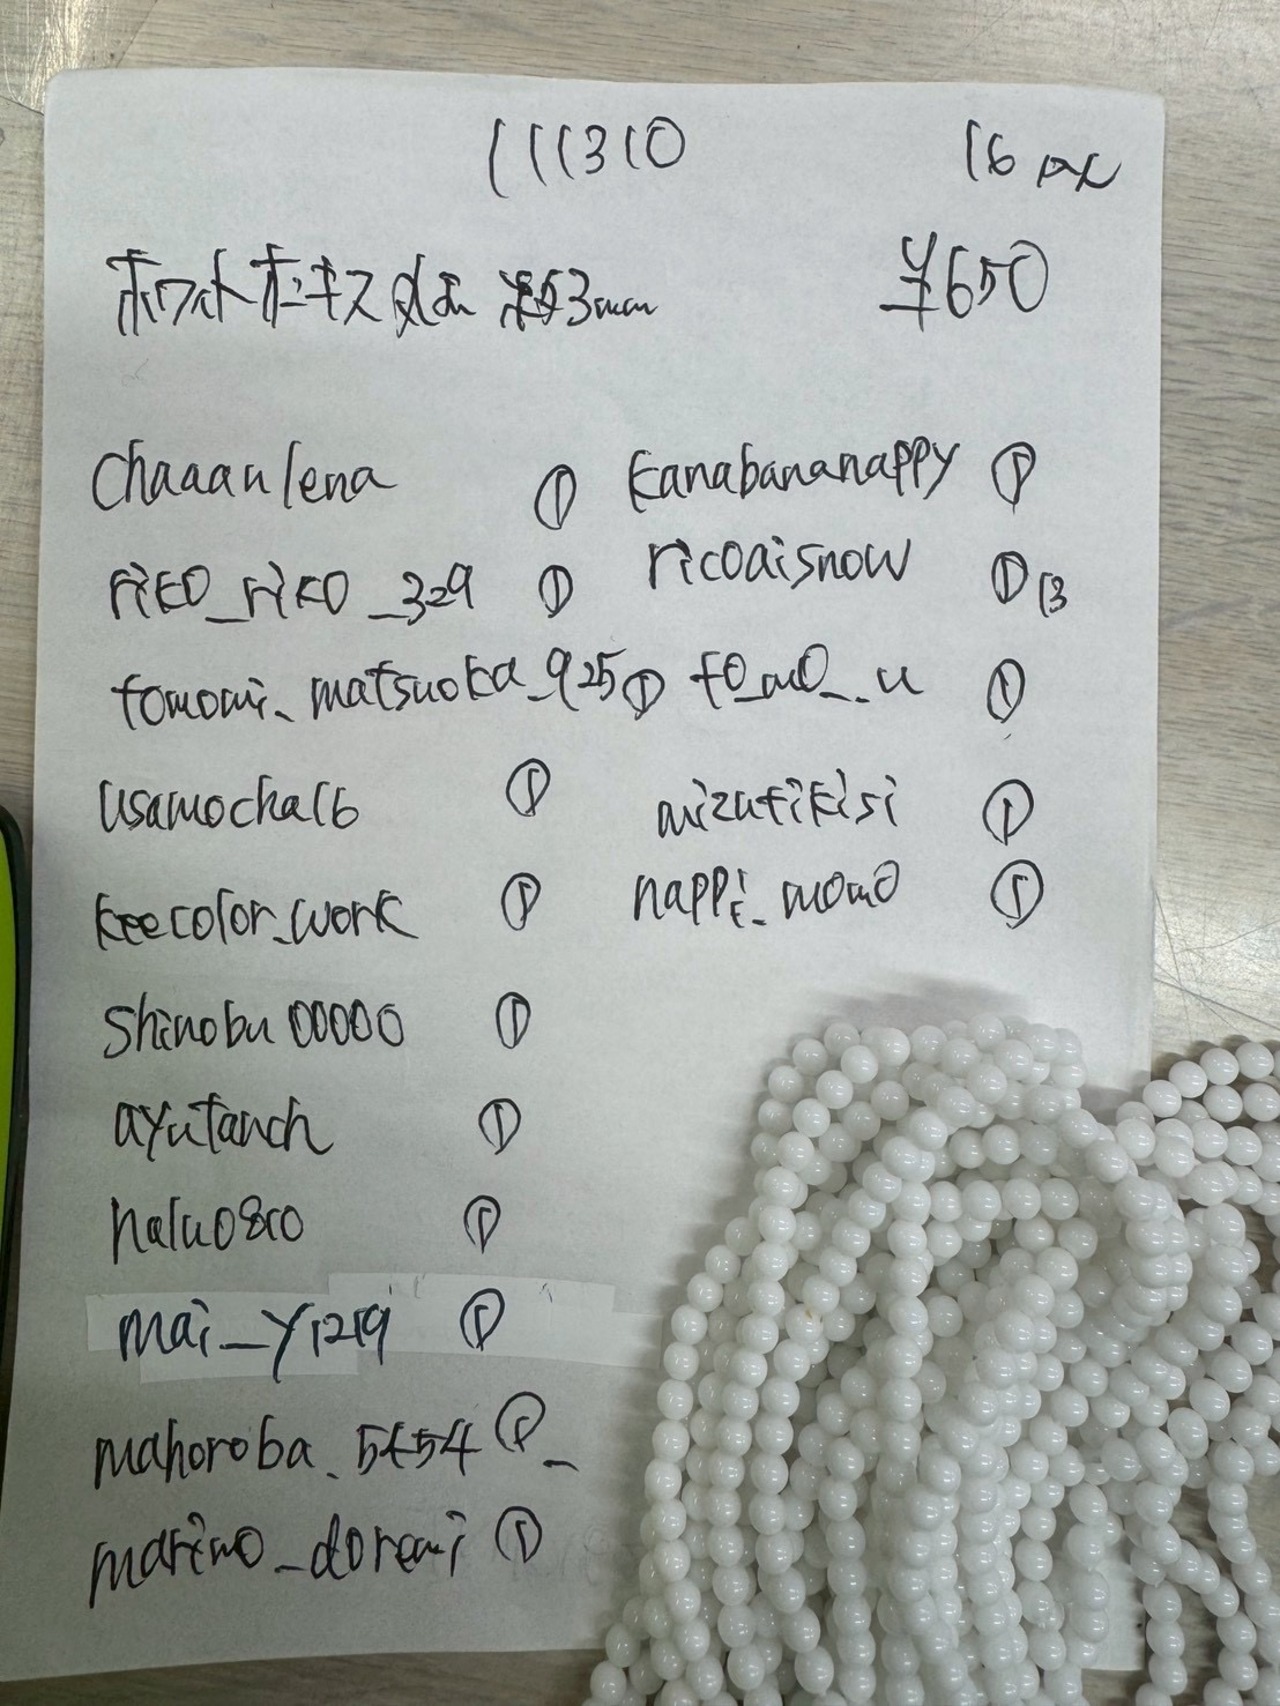 111310
16 pcs
ホワイトオニキス 丸玉 約3mm
¥650
chaaanlena ①
riko_riko_329 ①
tomomi_matsuoka_925 ①
usamocha16 ①
keecolor_work ①
shinobu00000 ①
ayutanch ①
halu0810 ①
mai_y1219 ①
mahoroba_5454 ① _
marimo_doremi ①
kanabananappy ①
ricoaisnow ① 13
to_mo_._u ①
mizutikisi ①
nappi_momo ①